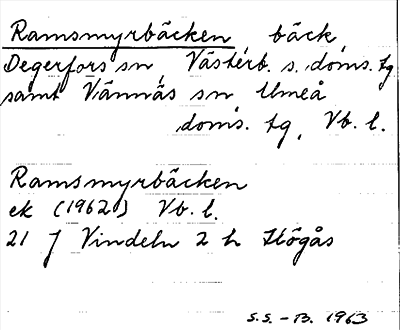 Ramsmyrbäcken bäck
Degerfors sn, Västerb. s. doms. tg
samt Vännäs sn Umeå
doms. tg, Vb. l.
Ramsmyrbäcken
ek (1962) Vb. l.
21 J Vindeln 2 h Högås
S.S. - B. 1963